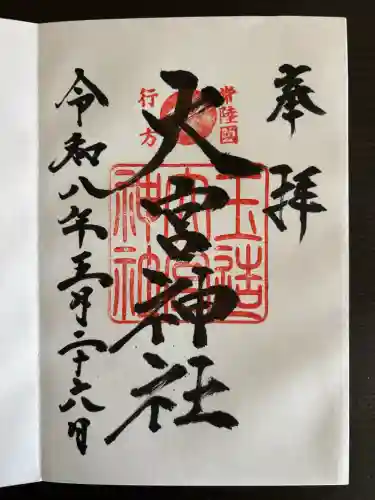 奉拝
常陸國
行方
大宮神社
玉造
大宮
神社
令和八年三月二十六日